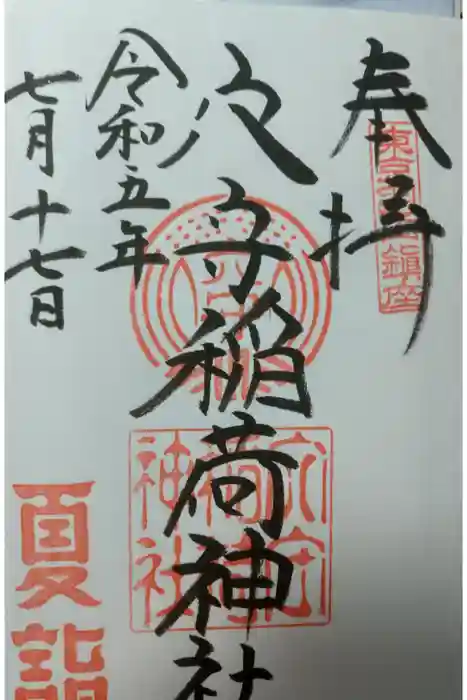 奉拝
穴守稲荷神社
令和五年
七月十七日
夏詣
穴守
稲荷
神社